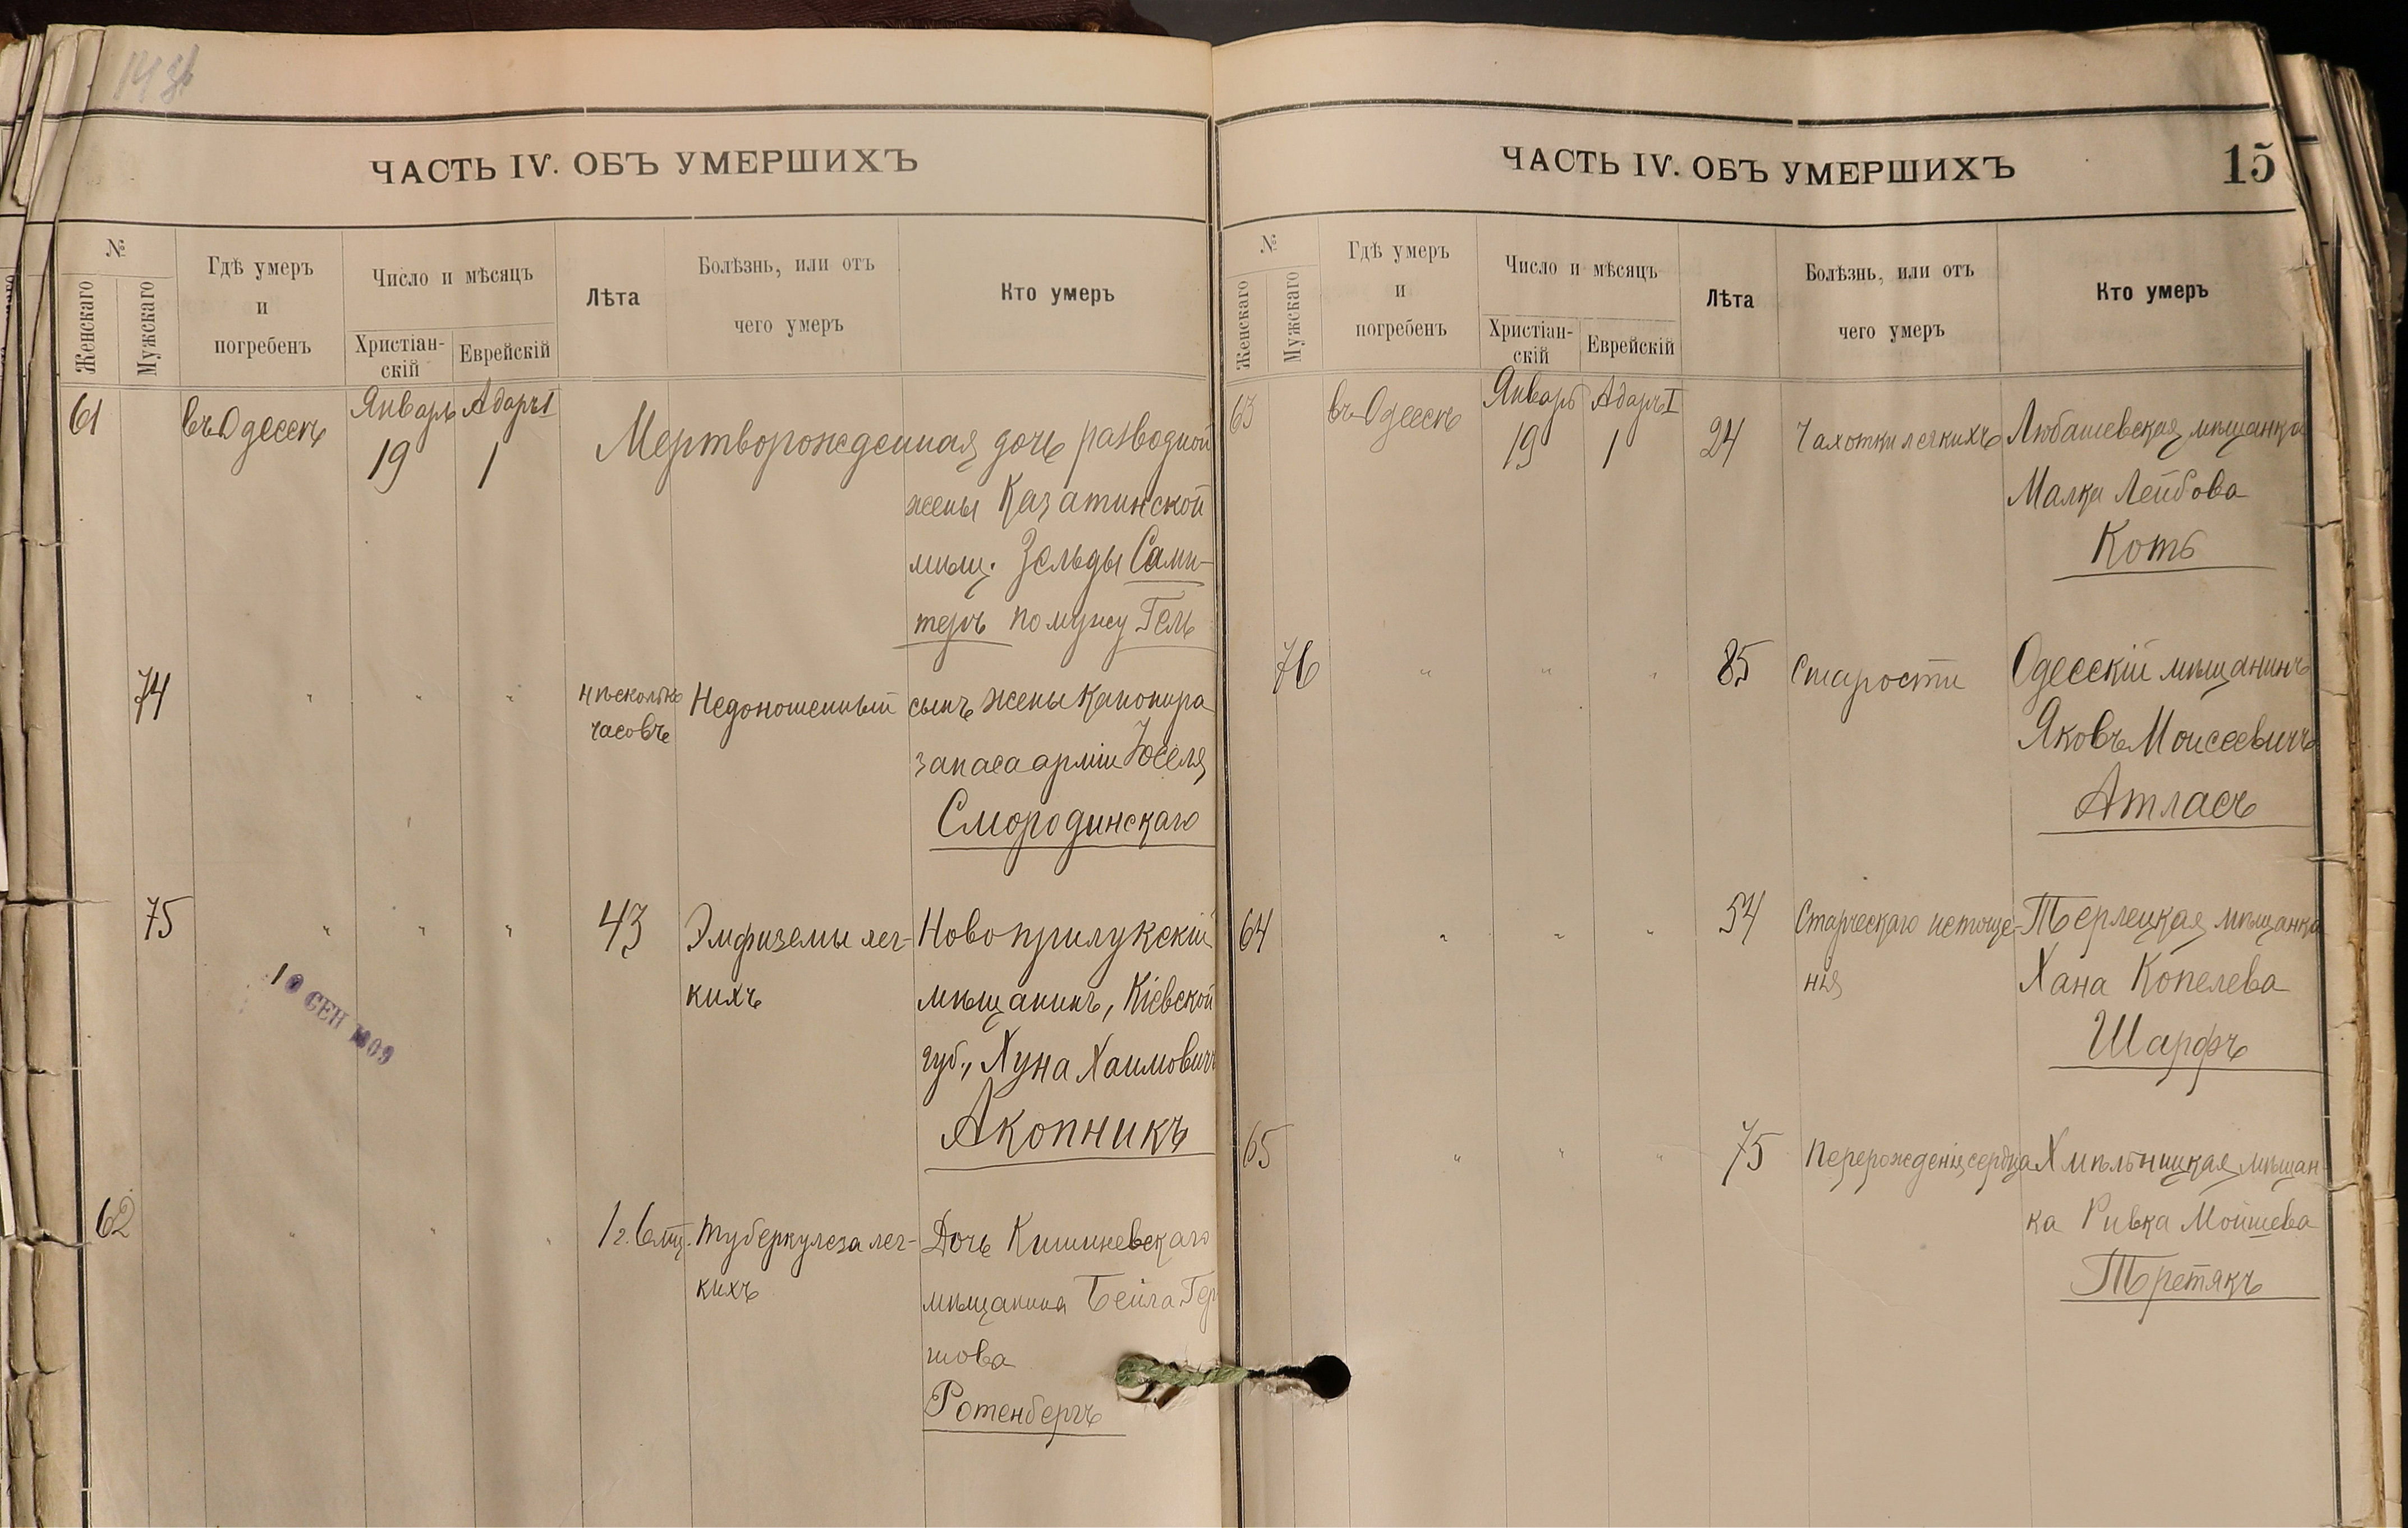 ЧАСТЬ IV. ОБЪ УМЕРШИХЪ
№
Женскаго
Мужскаго
Гдѣ умеръ
и
погребенъ
Число и мѣсяцъ
Христіан-
скій
Еврейскій
Лѣта
Болѣзнь, или отъ
чего умеръ
Кто умеръ
61 въ Одессѣ Январь Адаръ I
19 1 Мертворожденная дочь разводной
жены Казатинской
мѣщ. Зельды Сами-
теръ по мужу Гель
74 " " " нѣсколько Недоношенный сынъ жены канонира
часовъ запаса арміи Юселя
Смородинскаго
75 " " " 43 Эмфиземы лег- Новоприлукскій
кихъ мѣщанинъ, Кіевской
губ., Хуна Хаимовичъ
Акопникъ
10 СЕН 1909
62 " " " 1 г. 6 мц. Туберкулеза лег- Дочь Кишиневскаго
кихъ мѣщанина Бейла Гер
шова
Ротенбергъ
ЧАСТЬ IV. ОБЪ УМЕРШИХЪ 15
№
Женскаго
Мужскаго
Гдѣ умеръ
и
погребенъ
Число и мѣсяцъ
Христіан-
скій
Еврейскій
Лѣта
Болѣзнь, или отъ
чего умеръ
Кто умеръ
63 въ Одессѣ Январь Адаръ I
19 1 24 Чахотки легкихъ Любашевская мѣщанка
Малка Лейбова
Котъ
76 " " " 85 Старости Одесскій мѣщанинъ
Яковъ Моисеевичъ
Атласъ
64 " " " 54 Старческаго истоще- Терлецкая мѣщанка
нія Хана Копелева
Шарфъ
65 " " " 75 Перерожденія сердца Хмѣльницкая мѣщан-
ка Ривка Мойшева
Третякъ